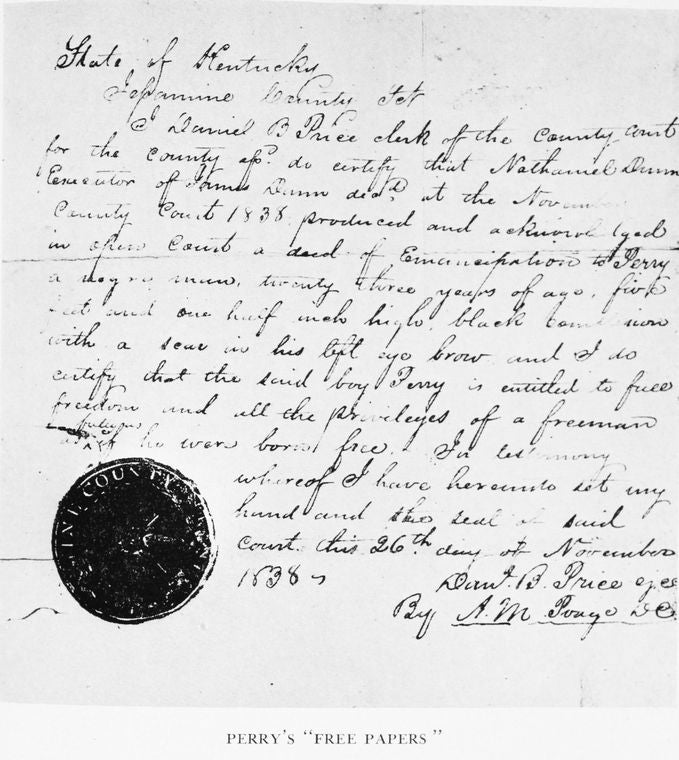 State of Kentucky
Jessamine County Sct
I Daniel B Price clerk of the County Court
for the county afsd. do certify that Nathaniel Dunn
Executor of James Dunn decd. at the November
County Court 1838 produced and acknowledged
in open Court a deed of Emancipation to Perry
a negro man, twenty three years of age, five
feet and one half inch high, black complexion
with a scar in his left eye brow and I do
certify that the said boy Perry is entitled to full
freedom and all the privileges of a freeman
as if he were born free. In testimony
whereof I have hereunto set my
hand and the seal of said
Court. this 26th. day of November
1838
Danl. B. Price
By A. M. Poage DC
INE COUNTY
PERRY'S "FREE PAPERS"